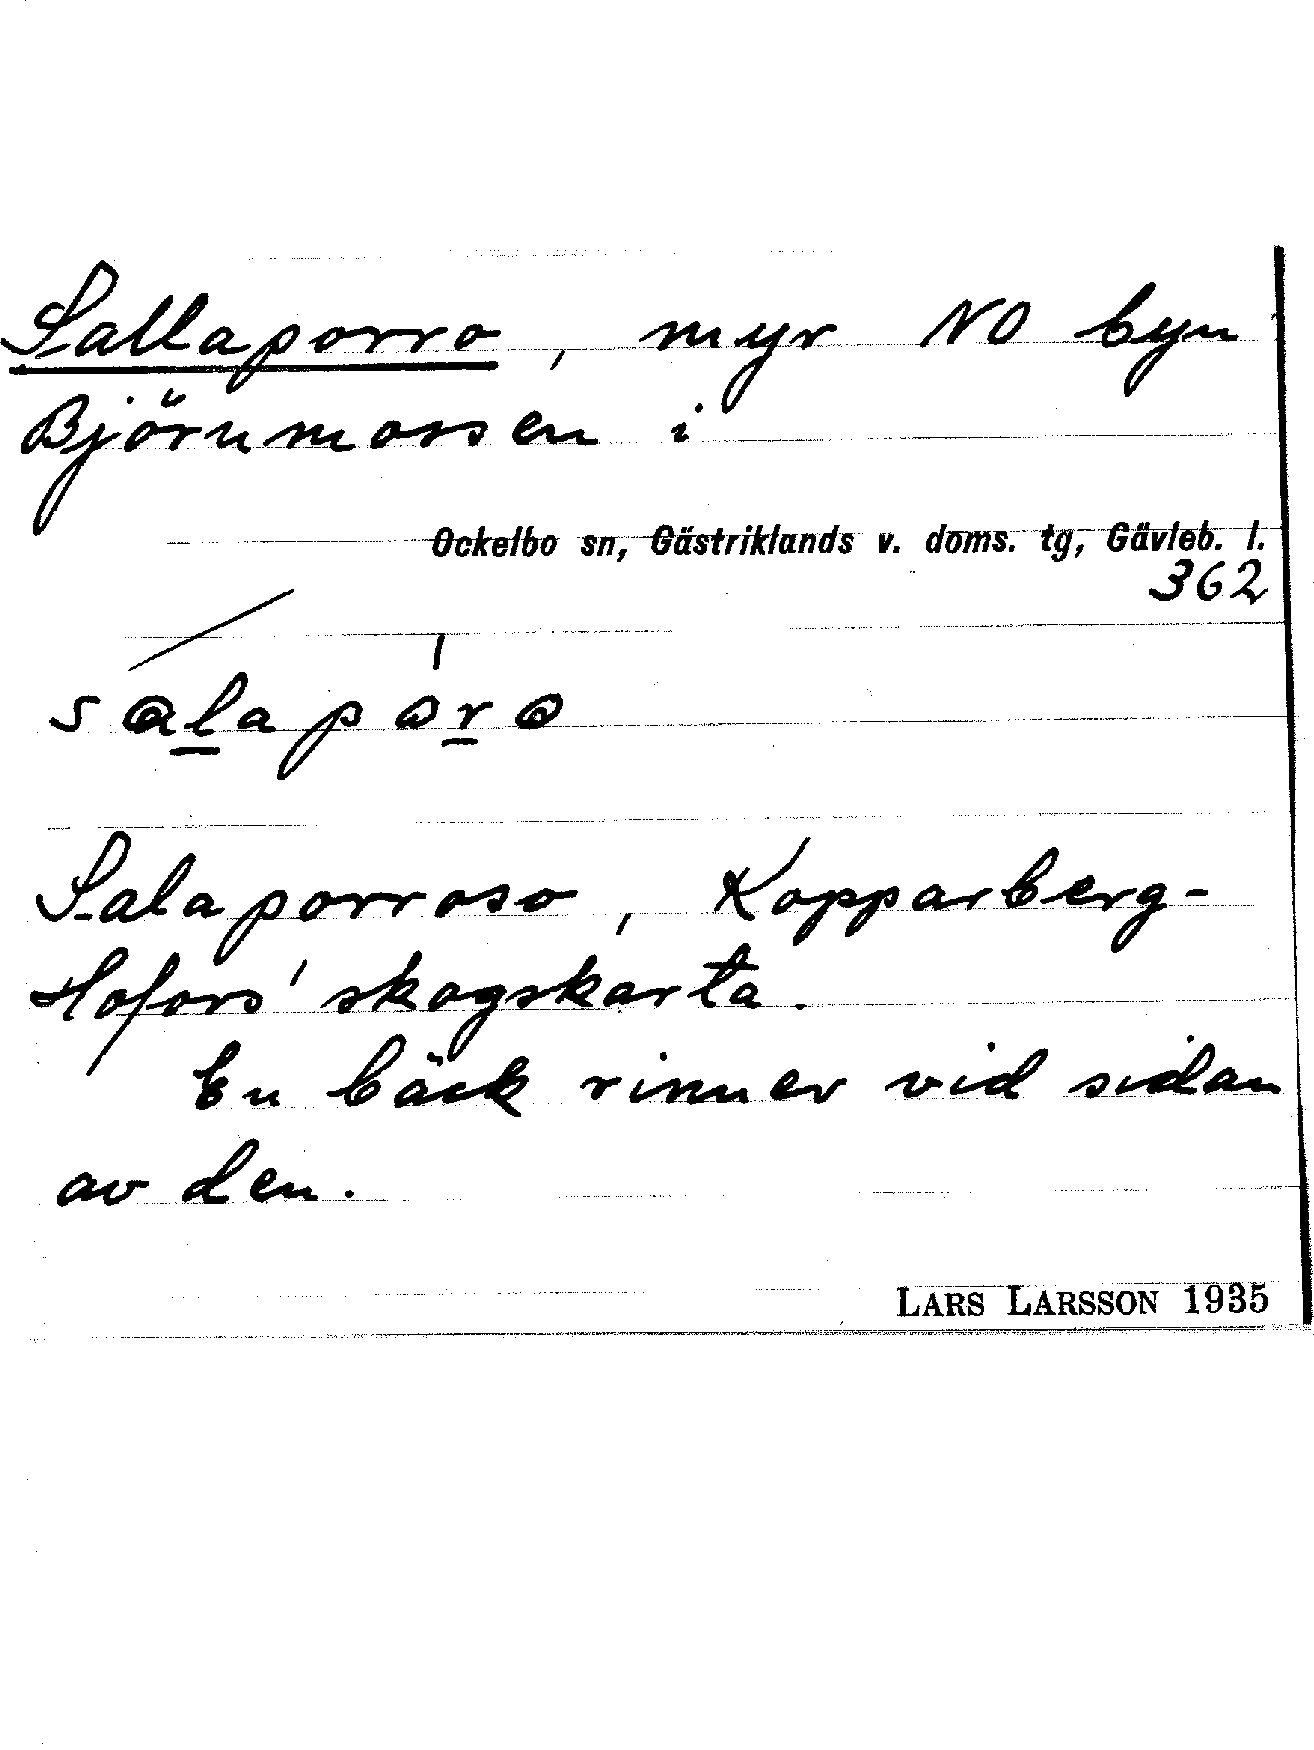 Sallaporro, myr NO byn
Björnmossen i
Ockelbo sn, Gästriklands v. doms. tg, Gävleb. l.
362
salaparo
Salaporroso, Kopparberg-
Hofors' skogskarta.
En bäck rinner vid sidan
av den.
LARS LARSSON 1935